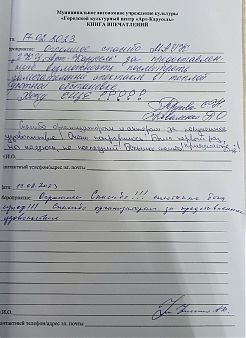 Муниципальное автономное учреждение культуры
«Городской культурный центр «Арт-Карусель»
КНИГА ВПЕЧАТЛЕНИЙ
17.02.2023
мероприятие: Огромное спасибо МАУК
"ГКЦ "Арт-Карусель" за предоставлен
ную возможность посмотреть
замечательный спектакль в теплой
уютной обстановке.
Хочу еще!!!!
Спасибо организаторам и актерам за полученное
удовольствие! Очень понравилось! Была первый раз,
но надеюсь не последний!
Ф.И.О.
контактный телефон/адрес эл. почты
Дата 19.02.2023
Мероприятие: Огромное Спасибо!!!
Спасибо организаторам за предоставленное
удовольствие
Ф.И.О.
контактный телефон/адрес эл. почты